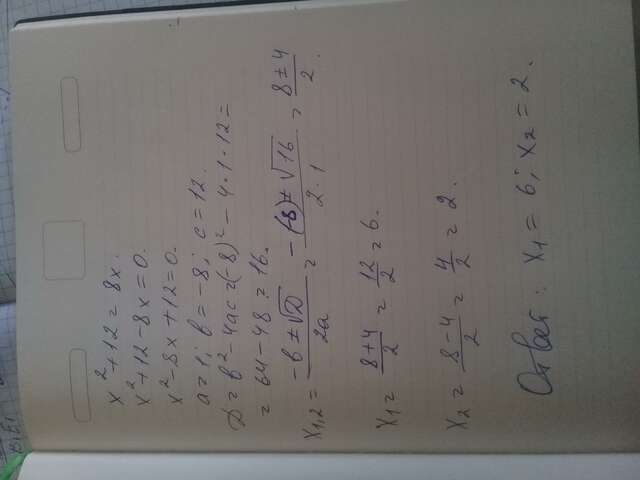 x² + 12 = 8x.
x² + 12 - 8x = 0.
x² - 8x + 12 = 0.
a = 1; b = -8; c = 12.
D = b² - 4ac = (-8)² - 4 · 1 · 12 =
= 64 - 48 = 16.
x₁,₂ = (-b ± √D)/2a = (-(-8) ± √16)/(2 · 1) = (8 ± 4)/2.
x₁ = (8 + 4)/2 = 12/2 = 6.
x₂ = (8 - 4)/2 = 4/2 = 2.
Ответ: x₁ = 6; x₂ = 2.